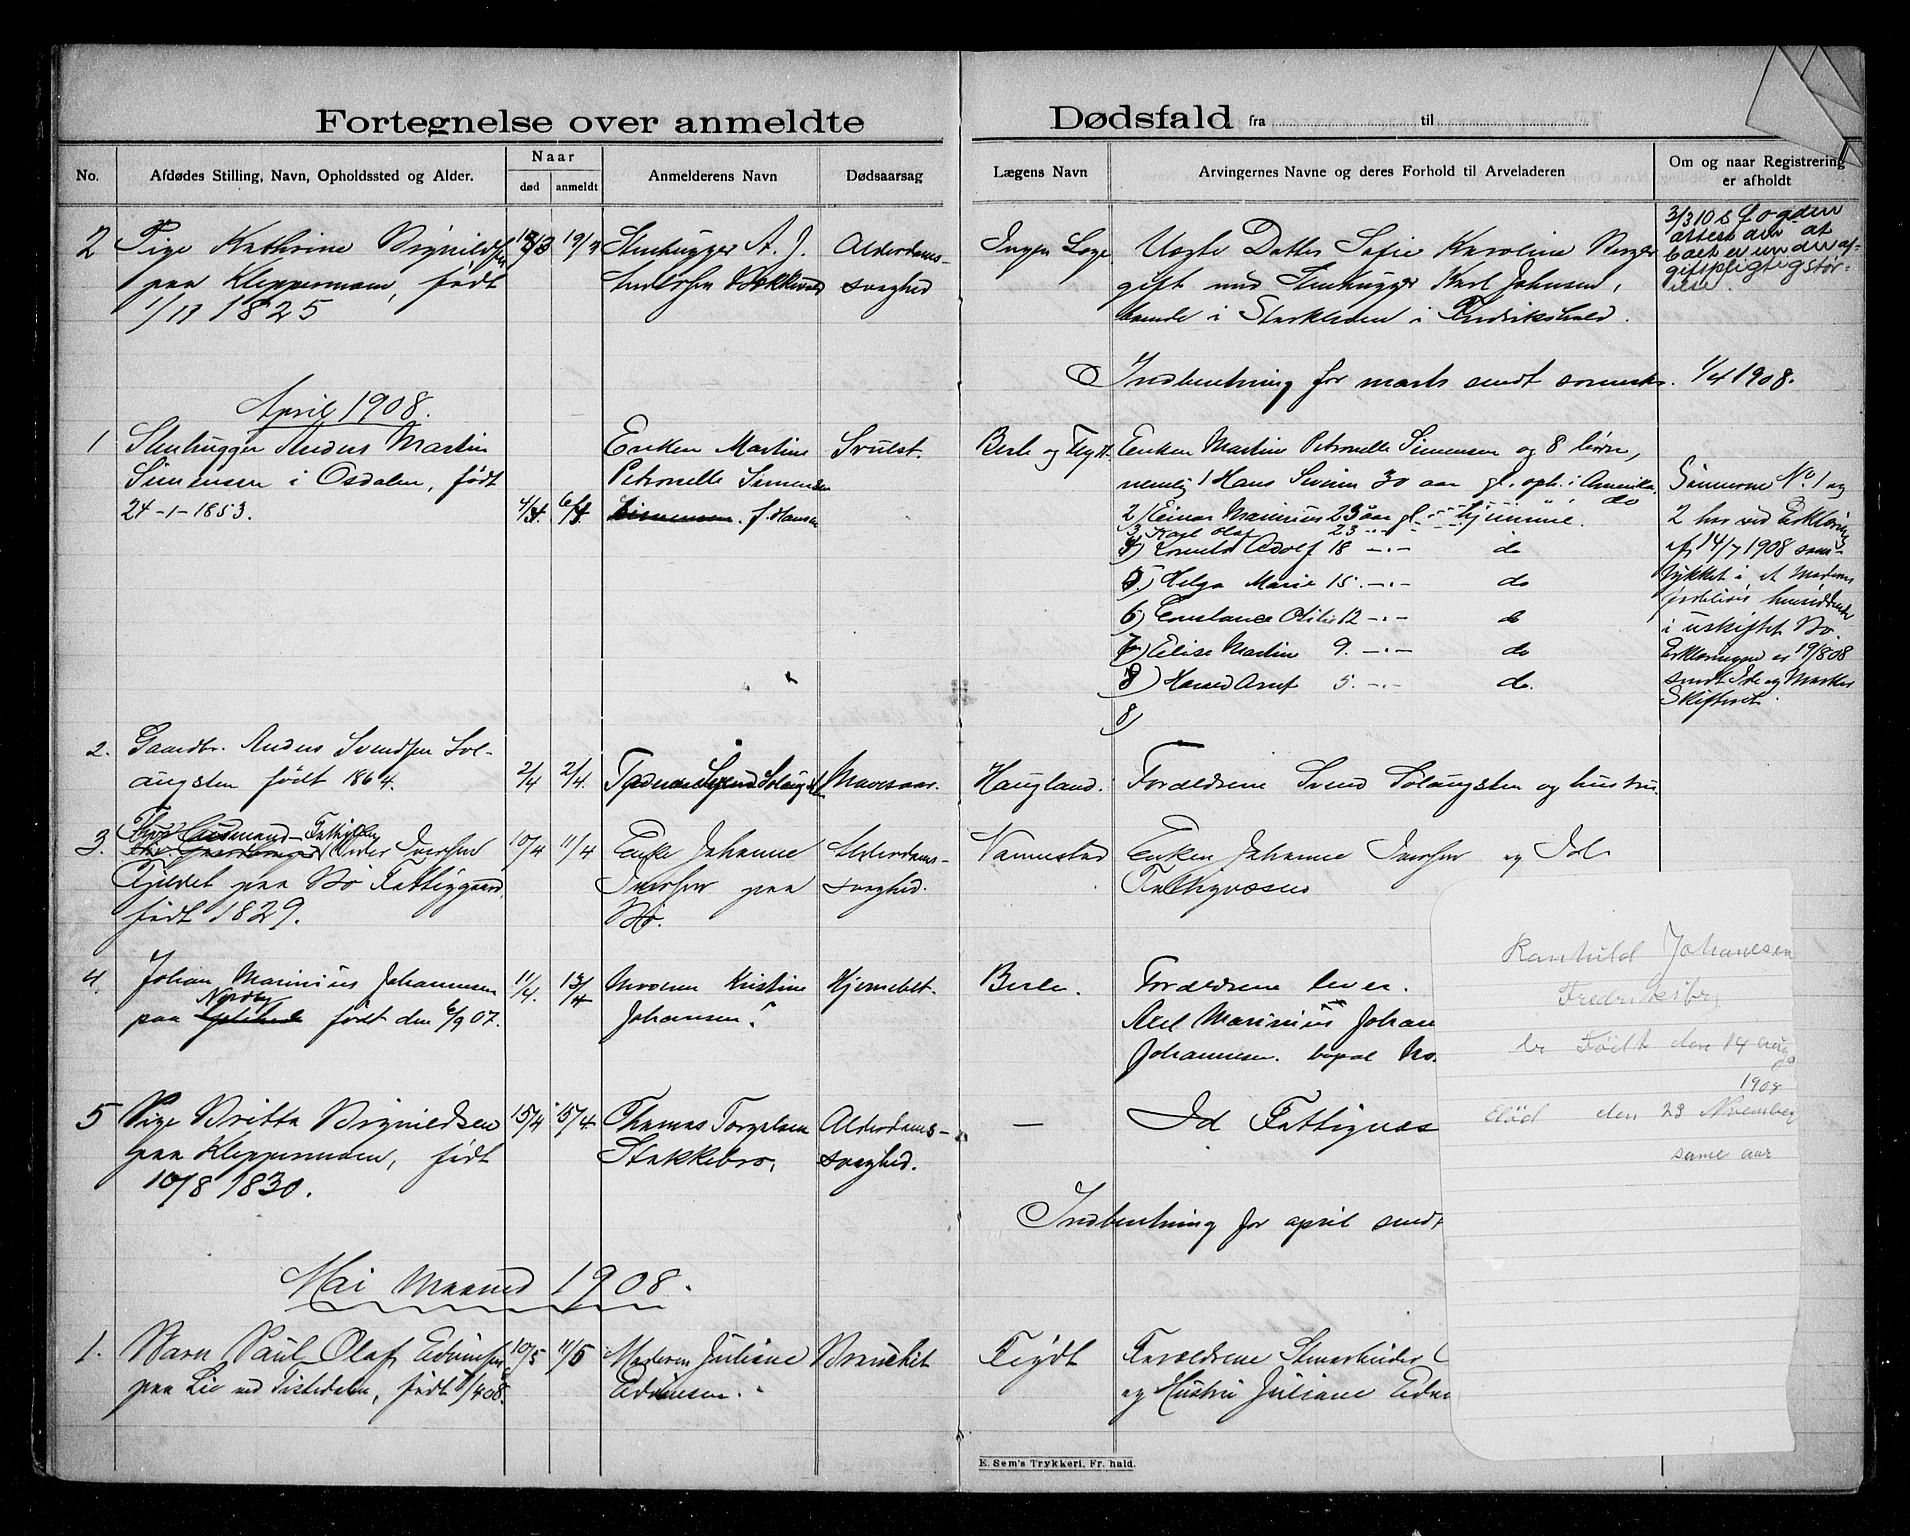 Fortegnelse over anmeldte Dødsfald fra til
No. Afdødes Stilling, Navn, Opholdssted og Alder. Naar død anmeldt Anmelderens Navn Dødsaarsag Lægens Navn Arvingernes Navne og deres Forhold til Arveladeren Om og naar Registrering er afholdt
2 Pige Kathrine Bignildsen
paa Kleppermoen, født
1/11 1825
19/3
Stenhugger A. J.
Andersen Bakkelund
Alderdoms-
svaghed
Ingen Læge
Uægte Datter Sofie Karoline
gift med Stenhugger Karl Johnsen,
boende i i Fredrikshald.
3/3 10 s Fogden
attest den at
boet er unddraf
giftspligtigstør-
else.
Indberetning for marts sendt sorensk. 1/4 1908.
April 1908.
1 Stenhugger Anders Martin
Simensen i Osdalen, født
24-1-1853.
4/4 6/4
Enken Martine
Petronelle Simensen
Simensen. f. Hansen
Svulst.
Berle og Flydt.
Enken Martine Petronelle Simensen og 8 børn,
nemlig 1 Hans Simen 30 aar gl. oph. i Amerika,
2) Einar Marinius 23 aar gl. hjemme. do
3 Karl Olaf 23 -"-
4) Adolf 18 -"- do
5) Helga Marie 15. -"- do
6) Constance Otilie 12 -"- do
7) Elise Martin 9. -"- do
8) Harald Arnt 5. -"- do.
8)
Sønnerne No 1 og
2 har ved Erklæring
af 14/7 1908 sam-
tykket i, at Moderen
forbliver hensiddende
i uskiftet Bo.
Erklæringen er 19/8 08
sendt Ide og Marker
Skifteret.
2. Gaardbr. Anders Svendsen Sol-
angsten født 1864.
2/4 2/4.
Faderen Svend Solangst
Mavesaar.
Haugland.
Forældrene Svend Solangsten og hustru.
3. Fattiglem
Gaardbruger Peder Iversen
Fjeldet paa Bø Fattiggaard,
født 1829.
10/4 11/4
Enke Johanne
Iversen paa
Bø.
Alderdoms-
svaghed.
Vannestad
Enken Johanne Iversen og Ide
Fattigvæsen
4. Johan Marinius Johannessen
Nordby
paa født den 6/9 07.
11/4. 13/4
Moderen Kristine
Johansen.
Hjernebet.
Berle.
Forældrene lever.
Axel Marinius Johan
Johannesen. bopæl No.
5 Pige Britta Bignildsen
paa Kleppermoen, født
10/8 1830.
15/4 15/4
Thomas Torgelsen
Stokkebro,
Alderdoms-
svaghed.
—
Id Fattigvæs
Indberetning for april sendt
Mai Maaned 1908.
1. Barn Paul Olaf Edvinsen
paa Lie ved Tistedalen, født 1/4 08.
10/5 11/5
Moderen Juliane
Edvinsen.
Bronchit
Flydt
Forældrene Stenarbeider
og Hustru Juliane Edv
Ranhild Johanesen
Fredriksberg
er Født den 14 aug
1908
død den 23 November
same aar
E. Sem's Trykkeri, Fr. hald.